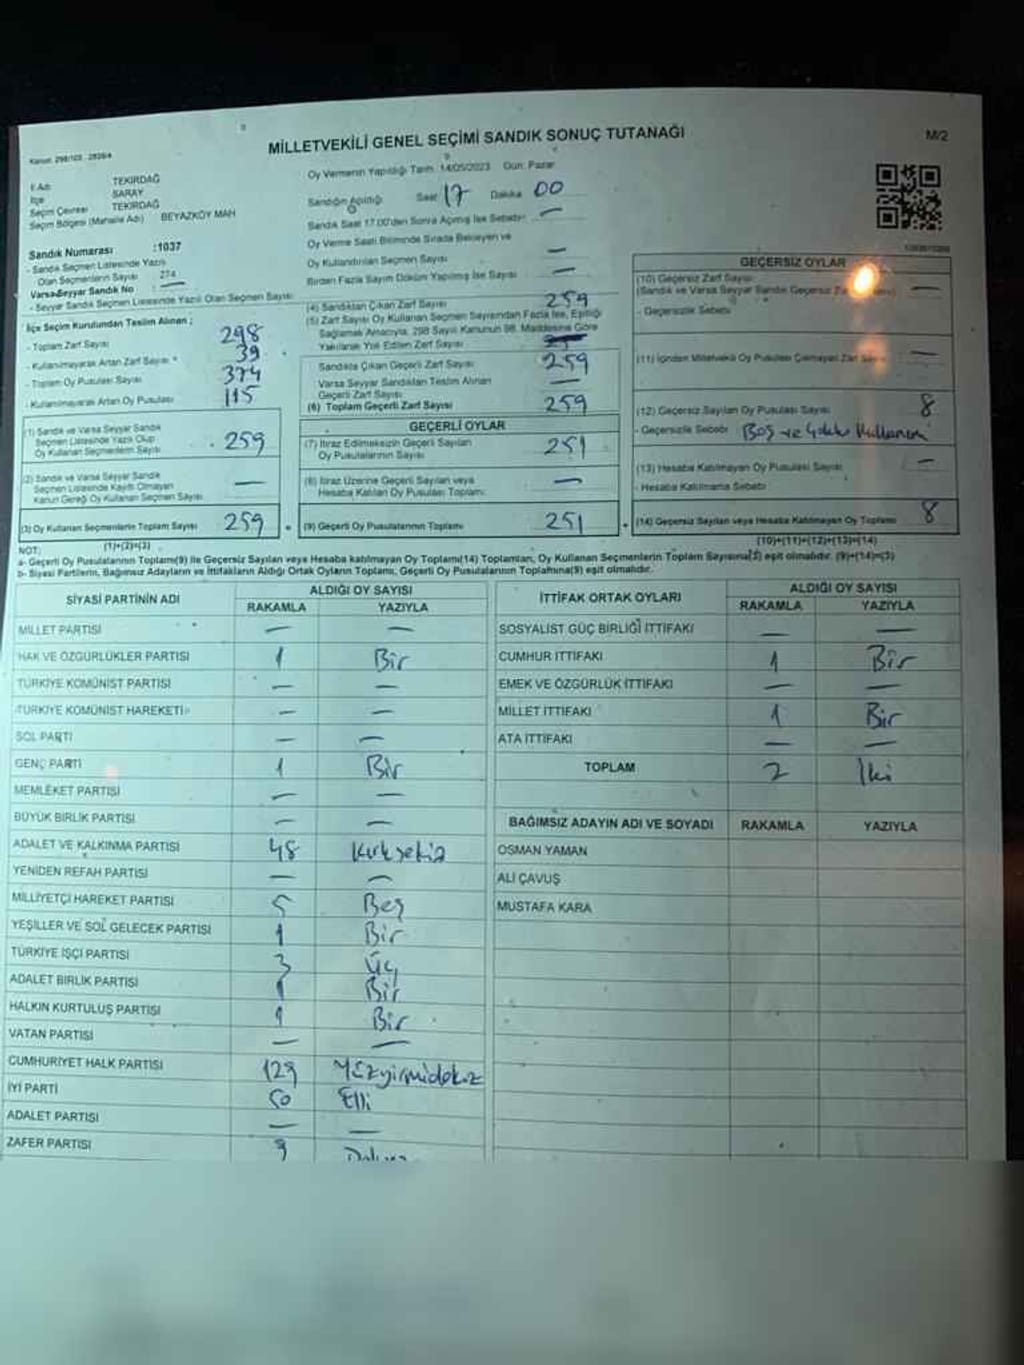 MİLLETVEKİLİ GENEL SEÇİMİ SANDIK SONUÇ TUTANAĞI
M/2
İl Adı TEKİRDAĞ
İlçe SARAY
Seçim Çevresi TEKİRDAĞ
Seçim Bölgesi (Mahalle Adı) BEYAZKÖY MAH
Sandık Numarası :1037
- Sandık Seçmen Listesinde Yazılı
Olan Seçmenlerin Sayısı 274
Varsa Seyyar Sandık No : —
- Seyyar Sandık Seçmen Listesinde Yazılı Olan Seçmen Sayısı
Oy Vermenin Yapıldığı Tarih: 14/05/2023 Gün: Pazar
Sandığın Açıldığı Saat 17 Dakika 00
Sandık Saat 17.00'den Sonra Açılmış İse Sebebi: —
Oy Verme Saati Bitiminde Sırada Bekleyen ve
Oy Kullandırılan Seçmen Sayısı —
Birden Fazla Sayım Döküm Yapılmış İse Sayısı —
İlçe Seçim Kurulundan Teslim Alınan ;
- Toplam Zarf Sayısı 298
- Kullanılmayarak Artan Zarf Sayısı 39
- Toplam Oy Pusulası Sayısı 374
- Kullanılmayarak Artan Oy Pusulası 115
(1) Sandık ve Varsa Seyyar Sandık
Seçmen Listesinde Yazılı Olup
Oy Kullanan Seçmenlerin Sayısı 259
(2) Sandık ve Varsa Seyyar Sandık
Seçmen Listesinde Kayıtlı Olmayan
Kanun Gereği Oy Kullanan Seçmen Sayısı —
(3) Oy Kullanan Seçmenlerin Toplam Sayısı 259
(1)+(2)=(3)
(4) Sandıktan Çıkan Zarf Sayısı 259
(5) Zarf Sayısı Oy Kullanan Seçmen Sayısından Fazla İse, Eşitliği
Sağlamak Amacıyla, 298 Sayılı Kanunun 98. Maddesine Göre
Yakılarak Yok Edilen Zarf Sayısı
Sandıkta Çıkan Geçerli Zarf Sayısı 259
Varsa Seyyar Sandıktan Teslim Alınan
Geçerli Zarf Sayısı —
(6) Toplam Geçerli Zarf Sayısı 259
GEÇERLİ OYLAR
(7) İtiraz Edilmeksizin Geçerli Sayılan
Oy Pusulalarının Sayısı 251
(8) İtiraz Üzerine Geçerli Sayılan veya
Hesaba Katılan Oy Pusulası Toplamı —
(9) Geçerli Oy Pusulalarının Toplamı 251
GEÇERSİZ OYLAR
(10) Geçersiz Zarf Sayısı
(Sandık ve Varsa Seyyar Sandık Geçersiz —
- Geçersizlik Sebebi
(11) İçinden Milletvekili Oy Pusulası Çıkmayan Zarf —
(12) Geçersiz Sayılan Oy Pusulası Sayısı 8
- Geçersizlik Sebebi Boş ve Çoklu Kullanım
(13) Hesaba Katılmayan Oy Pusulası Sayısı —
- Hesaba Katılmama Sebebi
(14) Geçersiz Sayılan veya Hesaba Katılmayan Oy Toplamı 8
(10)+(11)+(12)+(13)=(14)
NOT:
a- Geçerli Oy Pusulalarının Toplamı(9) ile Geçersiz Sayılan veya Hesaba katılmayan Oy Toplamı(14) Toplamları, Oy Kullanan Seçmenlerin Toplam Sayısına(3) eşit olmalıdır. (9)+(14)=(3)
b- Siyasi Partilerin, Bağımsız Adayların ve İttifakların Aldığı Ortak Oyların Toplamı, Geçerli Oy Pusulalarının Toplamına(9) eşit olmalıdır.
SİYASİ PARTİNİN ADI ALDIĞI OY SAYISI
RAKAMLA YAZIYLA
MİLLET PARTİSİ — —
HAK VE ÖZGÜRLÜKLER PARTİSİ 1 Bir
TÜRKİYE KOMÜNİST PARTİSİ — —
TÜRKİYE KOMÜNİST HAREKETİ — —
SOL PARTİ — —
GENÇ PARTİ 1 Bir
MEMLEKET PARTİSİ — —
BÜYÜK BİRLİK PARTİSİ — —
ADALET VE KALKINMA PARTİSİ 48 Kırksekiz
YENİDEN REFAH PARTİSİ — —
MİLLİYETÇİ HAREKET PARTİSİ 5 Beş
YEŞİLLER VE SOL GELECEK PARTİSİ 1 Bir
TÜRKİYE İŞÇİ PARTİSİ 3 Üç
ADALET BİRLİK PARTİSİ 1 Bir
HALKIN KURTULUŞ PARTİSİ 1 Bir
VATAN PARTİSİ — —
CUMHURİYET HALK PARTİSİ 129 Yüzyirmidokuz
İYİ PARTİ 50 Elli
ADALET PARTİSİ — —
ZAFER PARTİSİ 9
İTTİFAK ORTAK OYLARI ALDIĞI OY SAYISI
RAKAMLA YAZIYLA
SOSYALİST GÜÇ BİRLİĞİ İTTİFAKI — —
CUMHUR İTTİFAKI 1 Bir
EMEK VE ÖZGÜRLÜK İTTİFAKI — —
MİLLET İTTİFAKI 1 Bir
ATA İTTİFAKI — —
TOPLAM 2 İki
BAĞIMSIZ ADAYIN ADI VE SOYADI RAKAMLA YAZIYLA
OSMAN YAMAN
ALİ ÇAVUŞ
MUSTAFA KARA